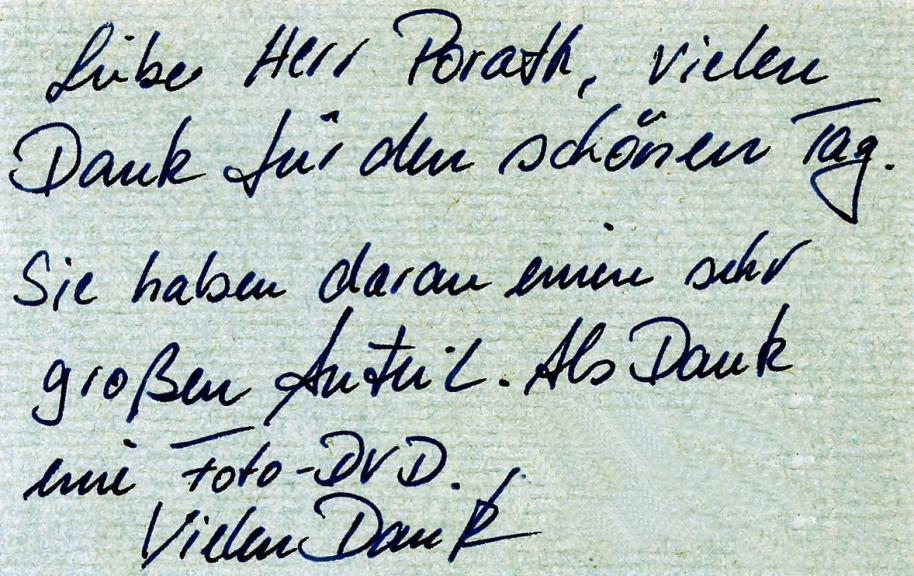 Lieber Herr Porath, vielen
Dank für den schönen Tag.
Sie haben daran einen sehr
großen Anteil. Als Dank
eine Foto-DVD.
Vielen Dank